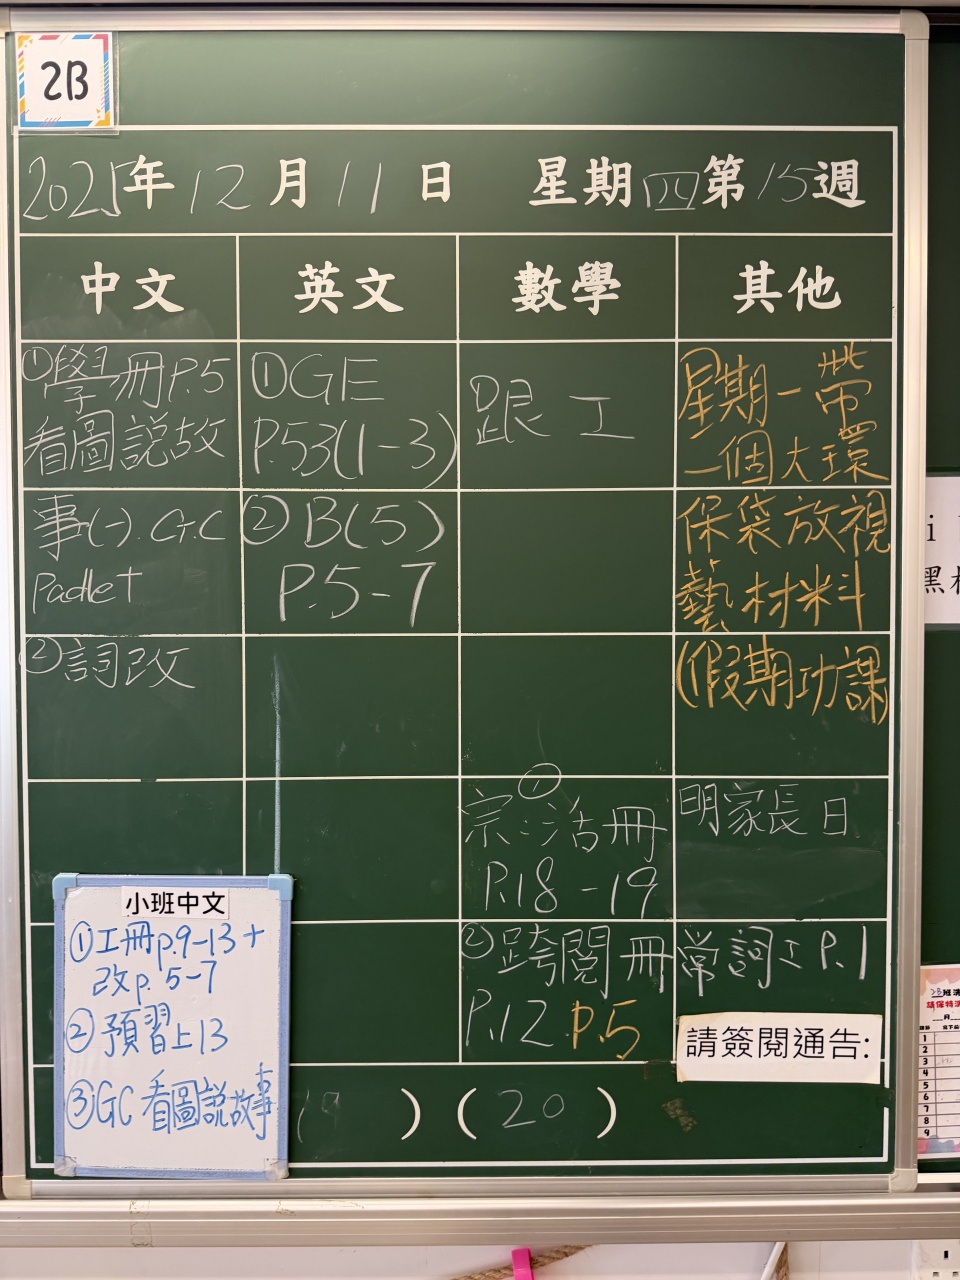 2B
2025年12月11日 星期四第15週
中文 英文 數學 其他
①學冊P.5
看圖說故
事(一). G.C
Padlet
②詞改
①GE
P.53(1-3)
②B(5)
P.5-7
①跟工
①
宗:活冊
P.18-19
②跨閱冊
P.12 P.5
星期一帶
一個大環
保袋放視
藝材料
(假期功課)
明家長日
常詞工P.1
請簽閱通告:
小班中文
①工冊p.9-13+
改p. 5-7
②預習上13
③GC 看圖說故事
) (20)
2B班
1
2
3
4
5
6
7
8
9